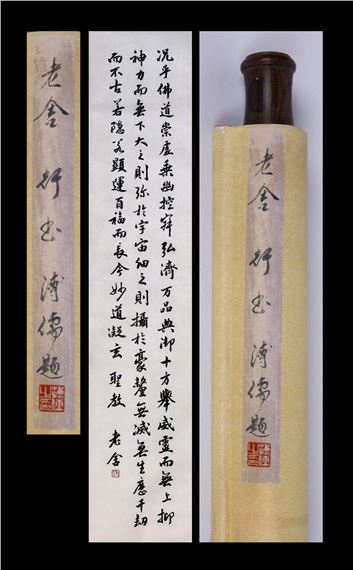 老舍 书 溥儒題
况乎佛道崇虛乘幽控寂弘濟万品典御十方舉威靈而無上抑
神力而無下大之則弥於宇宙細之則攝於豪釐無滅無生歷千劫
而不古若隱若顯運百福而長今妙道凝玄 聖教 老舍
老舍 书 溥儒題